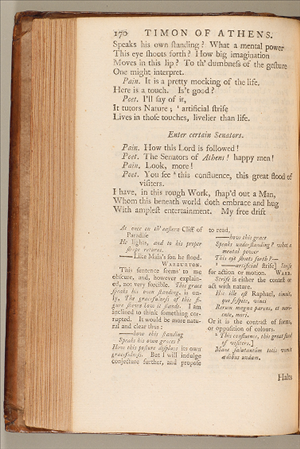 270 TIMON OF ATHENS.
Speaks his own standing? What a mental power
This eye shoots forth? How big imagination
Moves in this lip? To th' dumbness of the gesture
One might interpret.
Pain. It is a pretty mocking of the life.
Here is a touch. Is't good?
Poet. I'll say of it,
It tutors Nature; ' artificial strife
Lives in those touches, livelier than life.
Enter certain Senators.
Pain. How this Lord is followed!
Poet. The Senators of Athens! happy men!
Pain. Look, more!
Poet. You see ' this confluence, this great flood of
visiters.
I have, in this rough Work, shap'd out a Man,
Whom this beneath world doth embrace and hug
With amplest entertainment. My free drift
As once to th' eastern Cliff of
Paradise
He lights, and to his proper
shape returns.
—Like Maia's son he stood.
WARBURTON.
This sentence seems to me
obscure, and, however explain-
ed, not very forcible. This grace
speaks his own standing, is on-
ly, The gracefulness of this fi-
gure shews how it stands. I am
inclined to think something cor-
rupted. It would be more natu-
ral and clear thus:
——how this standing
Speaks his own graces?
How this posture displays its own
gracefulness. But I will indulge
conjecture further, and propose
to read,
——how this grace
Speaks understanding? what a
mental power
This eye shoots forth?—
' —artificial strife] Strife
for action or motion. WARB.
Strife is either the contest or
act with nature.
Hic ille est Raphael, timuit,
quo sospite, vinci
Rerum magna parens, et mori-
ente, mori.
Or it is the contrast of forms
or opposition of colours.
' This confluence, this great flood
of visiters.]
Mane salutantum totis vomit
ædibus undam.
Halts